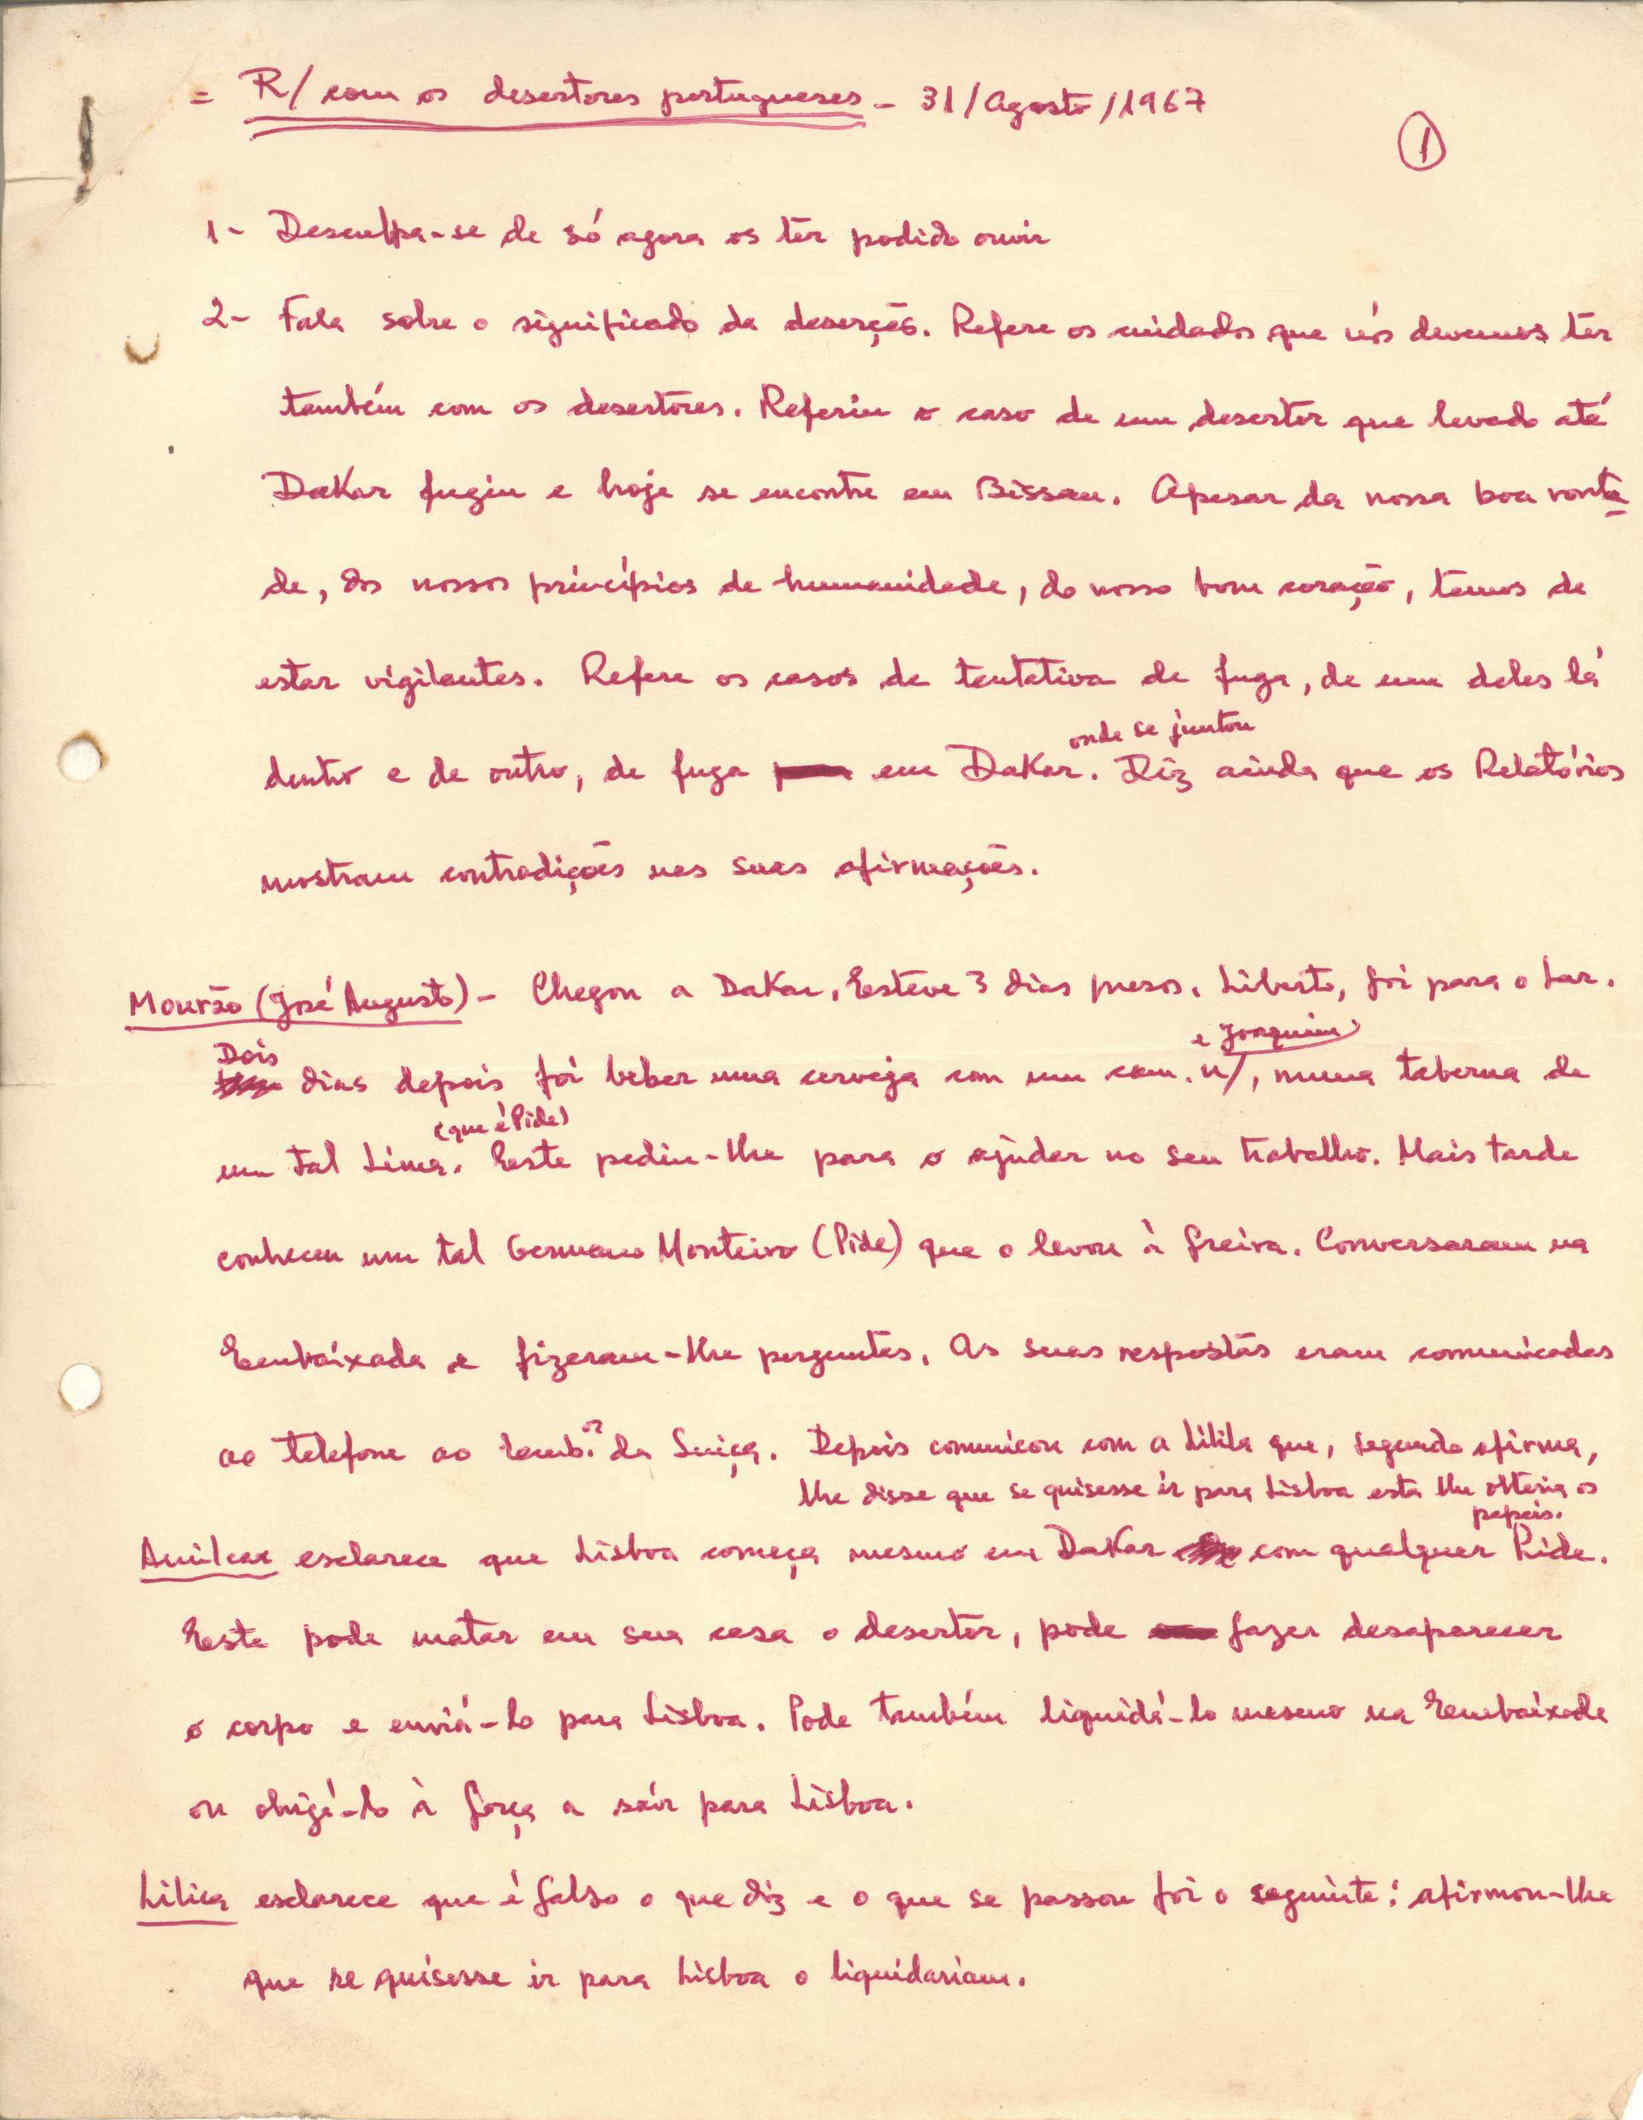 = R/ com os desertores portugueses - 31/Agosto/1967
1
1- Desculpa-se de só agora os ter podido ouvir
2- Fala sobre o significado da deserção. Refere os cuidados que nós devemos ter
também com os desertores. Referiu o caso de um desertor que levado até
Dakar fugiu e hoje se encontra em Bissau. Apesar da nossa boa vonta
de, dos nossos princípios de humanidade, do nosso bom coração, temos de
estar vigilantes. Refere os casos de tentativa de fuga, de um deles lá
onde se juntou
dentro e de outro, de fuga em Dakar. Diz ainda que os Relatórios
mostram contradições nas suas afirmações.
Mourão (José Augusto) - Chegou a Dakar, Esteve 3 dias preso. Liberto, foi para o Lar.
Dois
e Joaquim
dias depois foi beber uma cerveja com um cam. n/, numa taberna de
(que é Pide)
um tal Lima. Este pediu-lhe para o ajudar no seu trabalho. Mais tarde
conheceu um tal Germano Monteiro (Pide) que o levou à freira. Conversaram na
Embaixada e fizeram-lhe perguntas. As suas respostas eram comunicadas
ao telefone ao Emb.or da Suiça. Depois comunicou com a Lilica que, segundo afirma,
lhe disse que se quisesse ir para Lisboa esta lhe obteria os
papeis.
Amilcar esclarece que Lisboa começa mesmo em Dakar com qualquer Pide.
Este pode matar em sua casa o desertor, pode fazer desaparecer
o corpo e enviá-lo para Lisboa. Pode também liquidá-lo mesmo na Embaixada
ou obrigá-lo à força a sair para Lisboa.
Lilica esclarece que é falso o que diz e o que se passou foi o seguinte: afirmou-lhe
que se quisesse ir para Lisboa o liquidariam.